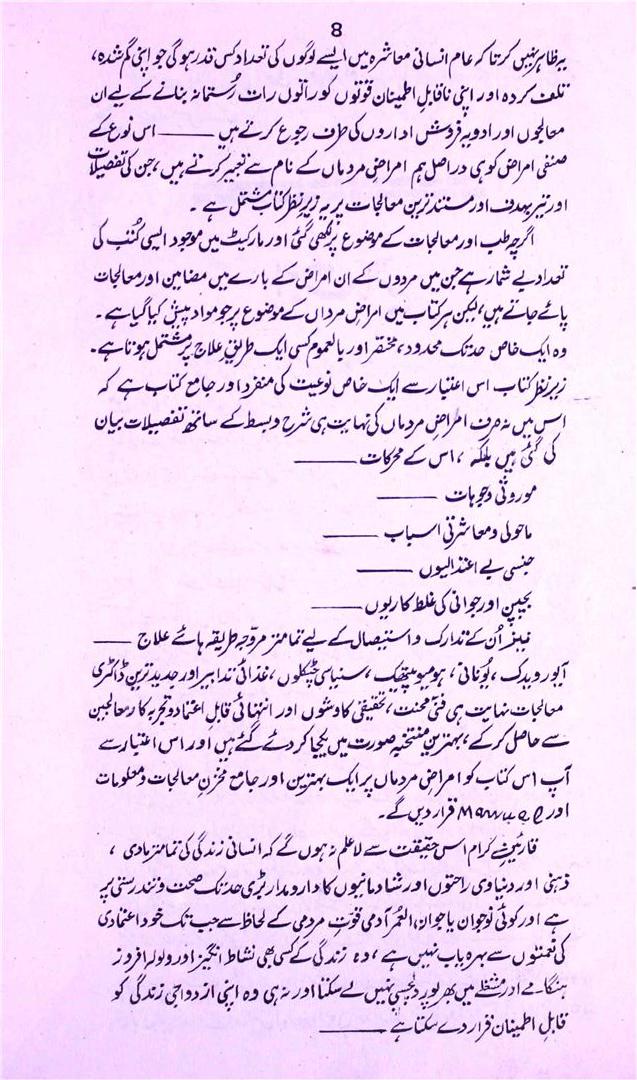 8
یہ ظاہر نہیں کرتا کہ عام انسانی معاشرہ میں ایسے لوگوں کی تعداد کس قدر ہوگی جو اپنی گم شدہ،
تلف کردہ اور اپنی ناقابلِ اطمینان قوتوں کو راتوں رات رُستمانہ بنانے کے لیے ان
معالجوں اور ادویہ فروش اداروں کی طرف رجوع کرتے ہیں ——— اس نوع کے
صنفی امراض کو ہی دراصل ہم امراضِ مردماں کے نام سے تعبیر کرتے ہیں، جن کی تفصیلات
اور تیر بہدف اور مستند ترین معالجات پر یہ زیرِ نظر کتاب مشتمل ہے۔
اگرچہ طب اور معالجات کے موضوع پر لکھی گئی اور مارکیٹ میں موجود ایسی کُتب کی
تعداد بے شمار ہے جن میں مردوں کے ان امراض کے بارے میں مضامین اور معالجات
پائے جاتے ہیں، لیکن ہر کتاب میں امراضِ مرداں کے موضوع پر جو مواد پیش کیا گیا ہے۔
وہ ایک خاص حد تک محدود، مختصر اور بالعموم کسی ایک طریقِ علاج پر مشتمل ہوتا ہے۔
زیرِ نظر کتاب اس اعتبار سے ایک خاص نوعیت کی منفرد اور جامع کتاب ہے کہ
اس میں نہ صرف امراضِ مردماں کی نہایت ہی شرح و بسط کے ساتھ تفصیلات بیان
کی گئی ہیں بلکہ، اس کے محرکات ———
موروثی وجوہات ———
ماحولی و معاشرتی اسباب ———
جنسی بے اعتدالیوں ———
بچپن اور جوانی کی غلط کاریوں ———
نیز اُن کے تدارک و استیصال کے لیے تمامتر مروّجہ طریقہ ہائے علاج ———
آیورویدک، یُونانی، ہومیوپیتھک، سنیاسی چٹکلوں، غذائی تدابیر اور جدید ترین ڈاکٹری
معالجات نہایت ہی فنی محنت، تحقیقی کاوشوں اور انتہائی قابلِ اعتماد و تجربہ کار معالجین
سے حاصل کر کے، بہترین منتخبہ صورت میں یکجا کر دئے گئے ہیں اور اس اعتبار سے
آپ اس کتاب کو امراضِ مردماں پر ایک بہترین اور جامع مخزنِ معالجات و معلومات
اور Manual قرار دیں گے۔
قارئینِ کرام اس حقیقت سے لاعلم نہ ہوں گے کہ انسانی زندگی کی تمامتر مادی،
ذہنی اور دنیاوی راحتوں اور شادمانیوں کا دارومدار بڑی حد تک صحت و تندرستی پر
ہے اور کوئی نوجوان یا جوان، العُمر آدمی قوتِ مردمی کے لحاظ سے جب تک خود اعتمادی
کی نعمتوں سے بہرہ یاب نہیں ہے، وہ زندگی کے کسی بھی نشاط انگیز اور ولولہ افروز
ہنگامے اور مشغلے میں بھرپور دلچسپی نہیں لے سکتا اور نہ ہی وہ اپنی ازدواجی زندگی کو
قابلِ اطمینان قرار دے سکتا ہے ———